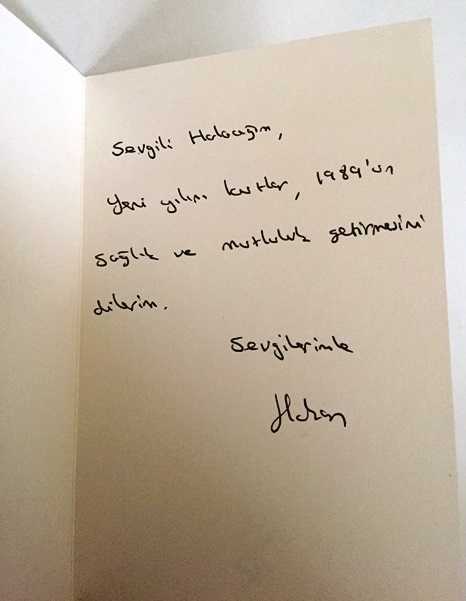 Sevgili Halacığım,
Yeni yılını kutlar, 1989'un
sağlık ve mutluluk getirmesini
dilerim.
Sevgilerimle
Hakan